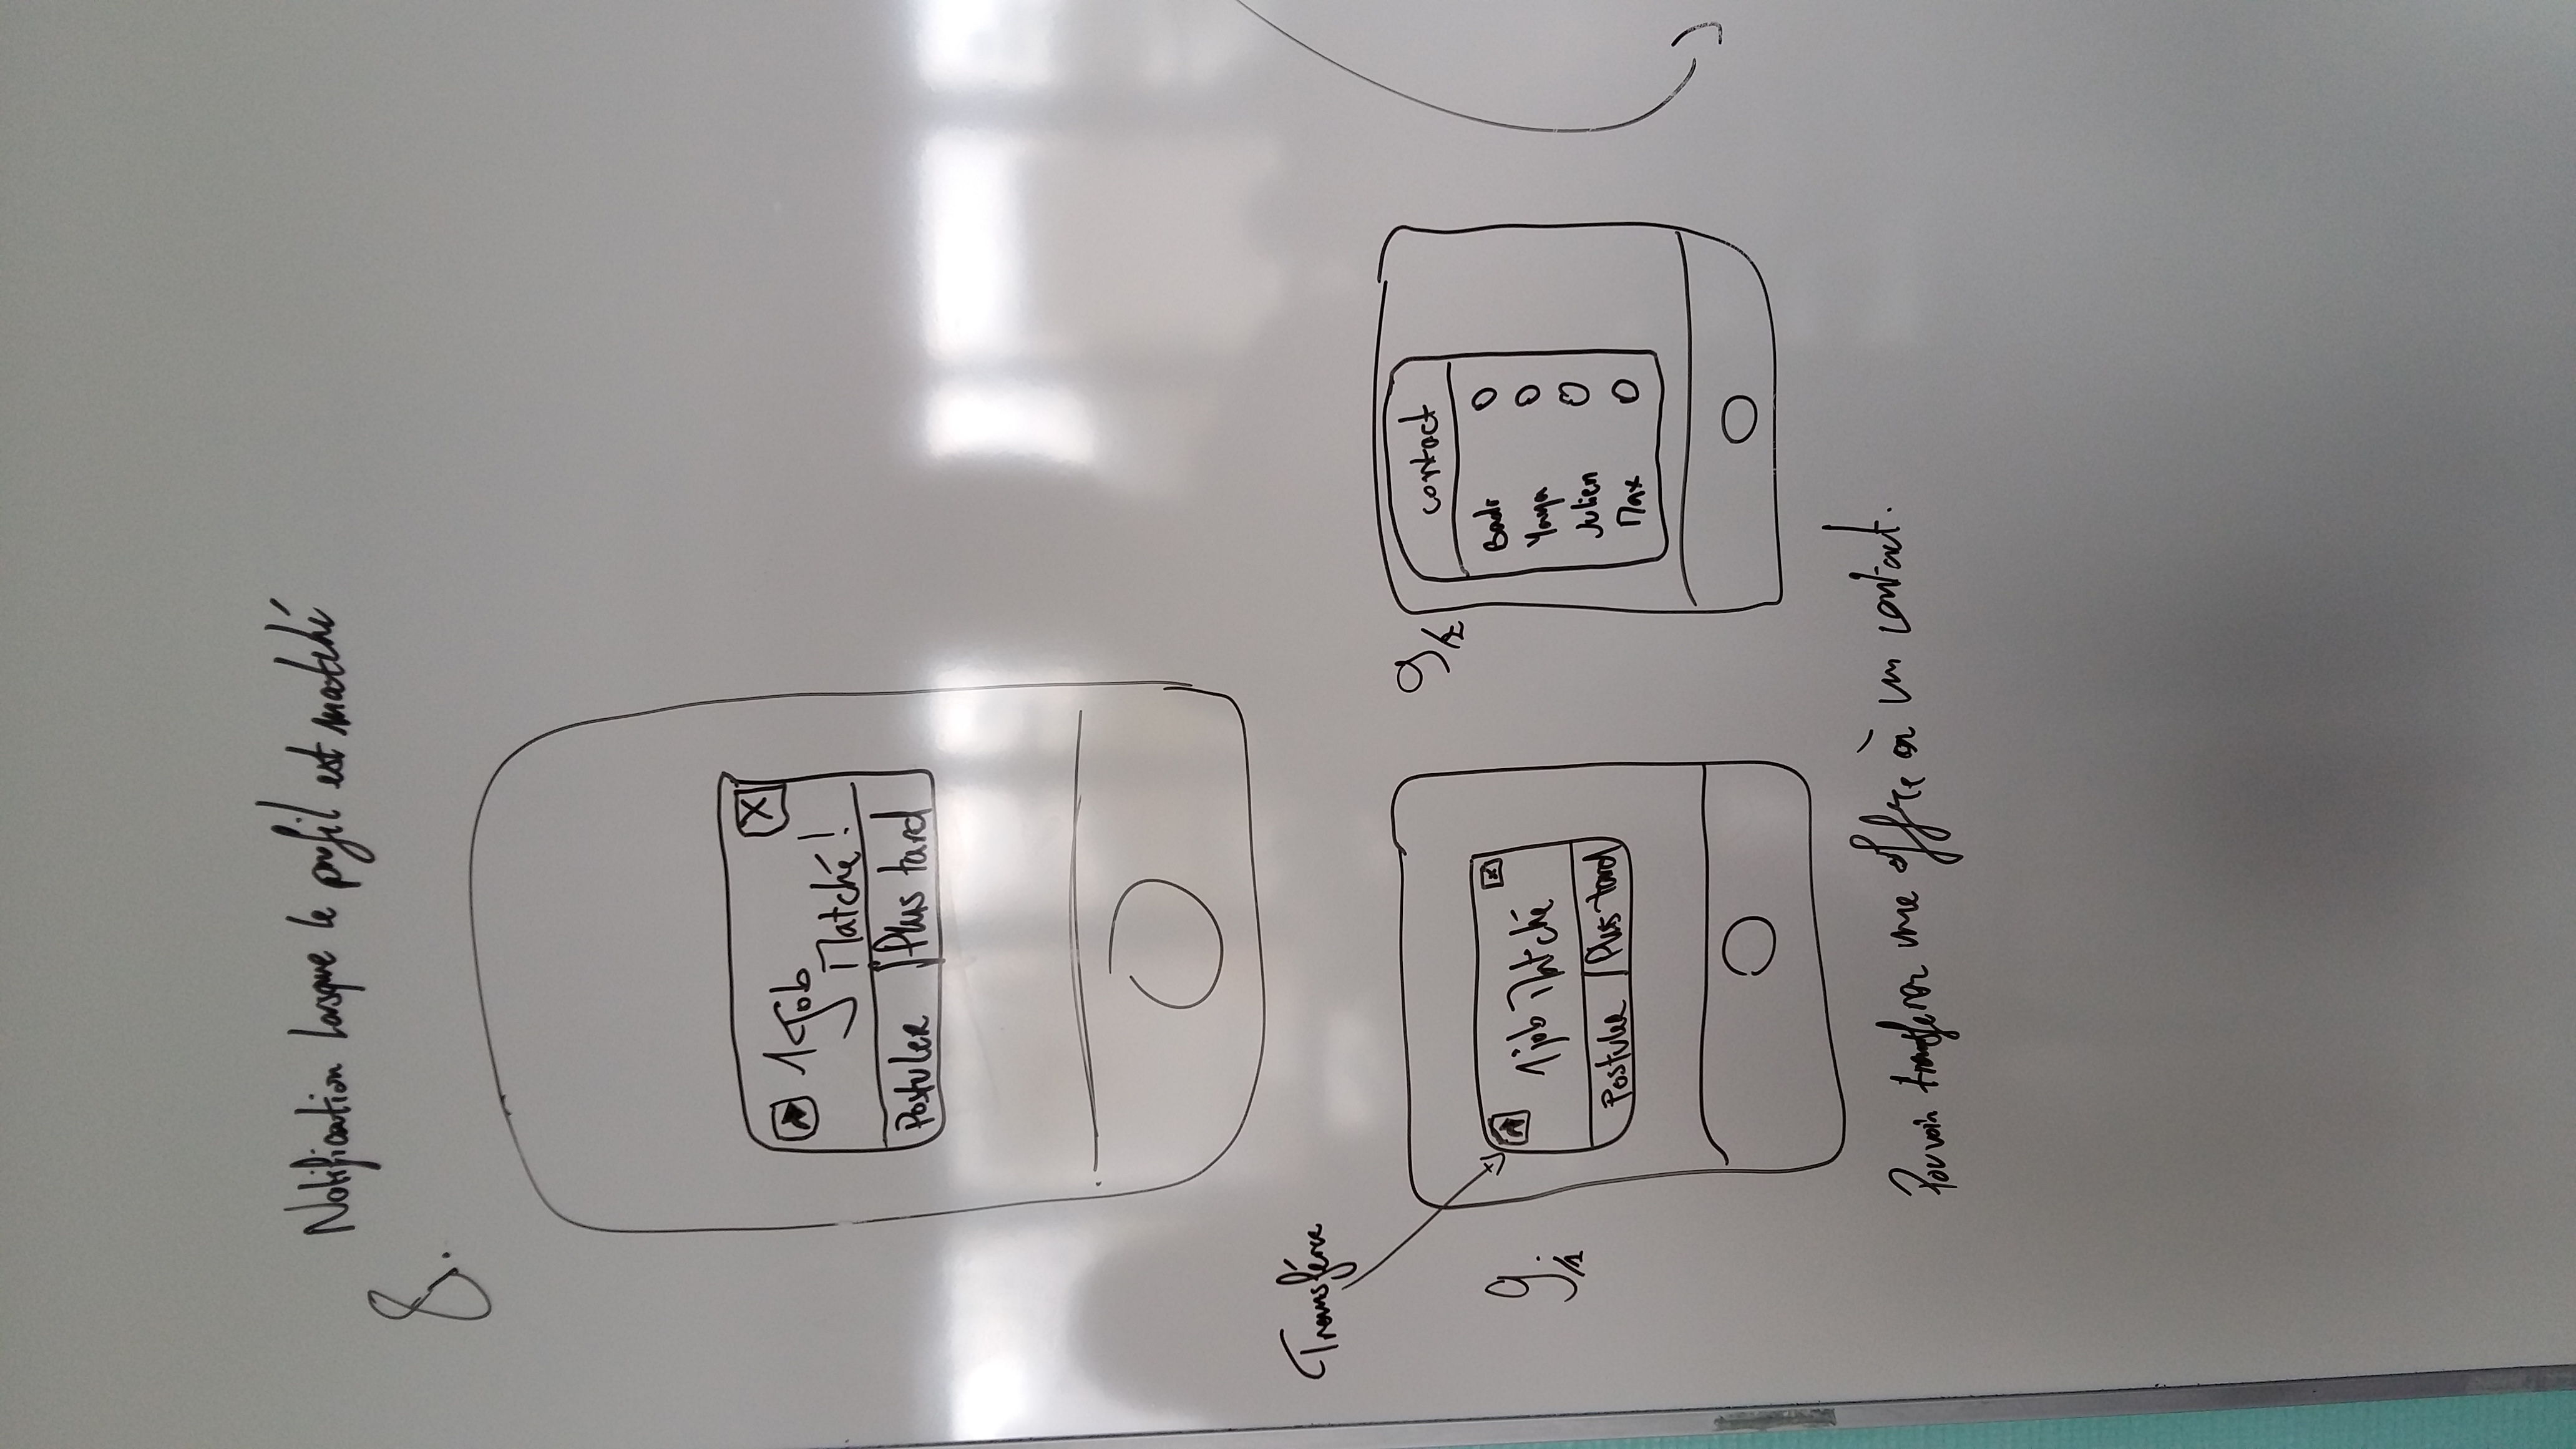 Notification lorsque le profil est matché
8.
1 Job
Matché !
X
Postuler
Plus tard
Transférer
9.1
1 job Matché
x
Postuler
Plus tard
9.2
contact
Badr
Yaya
Julien
Max
Pouvoir transferer une offre à un contact.